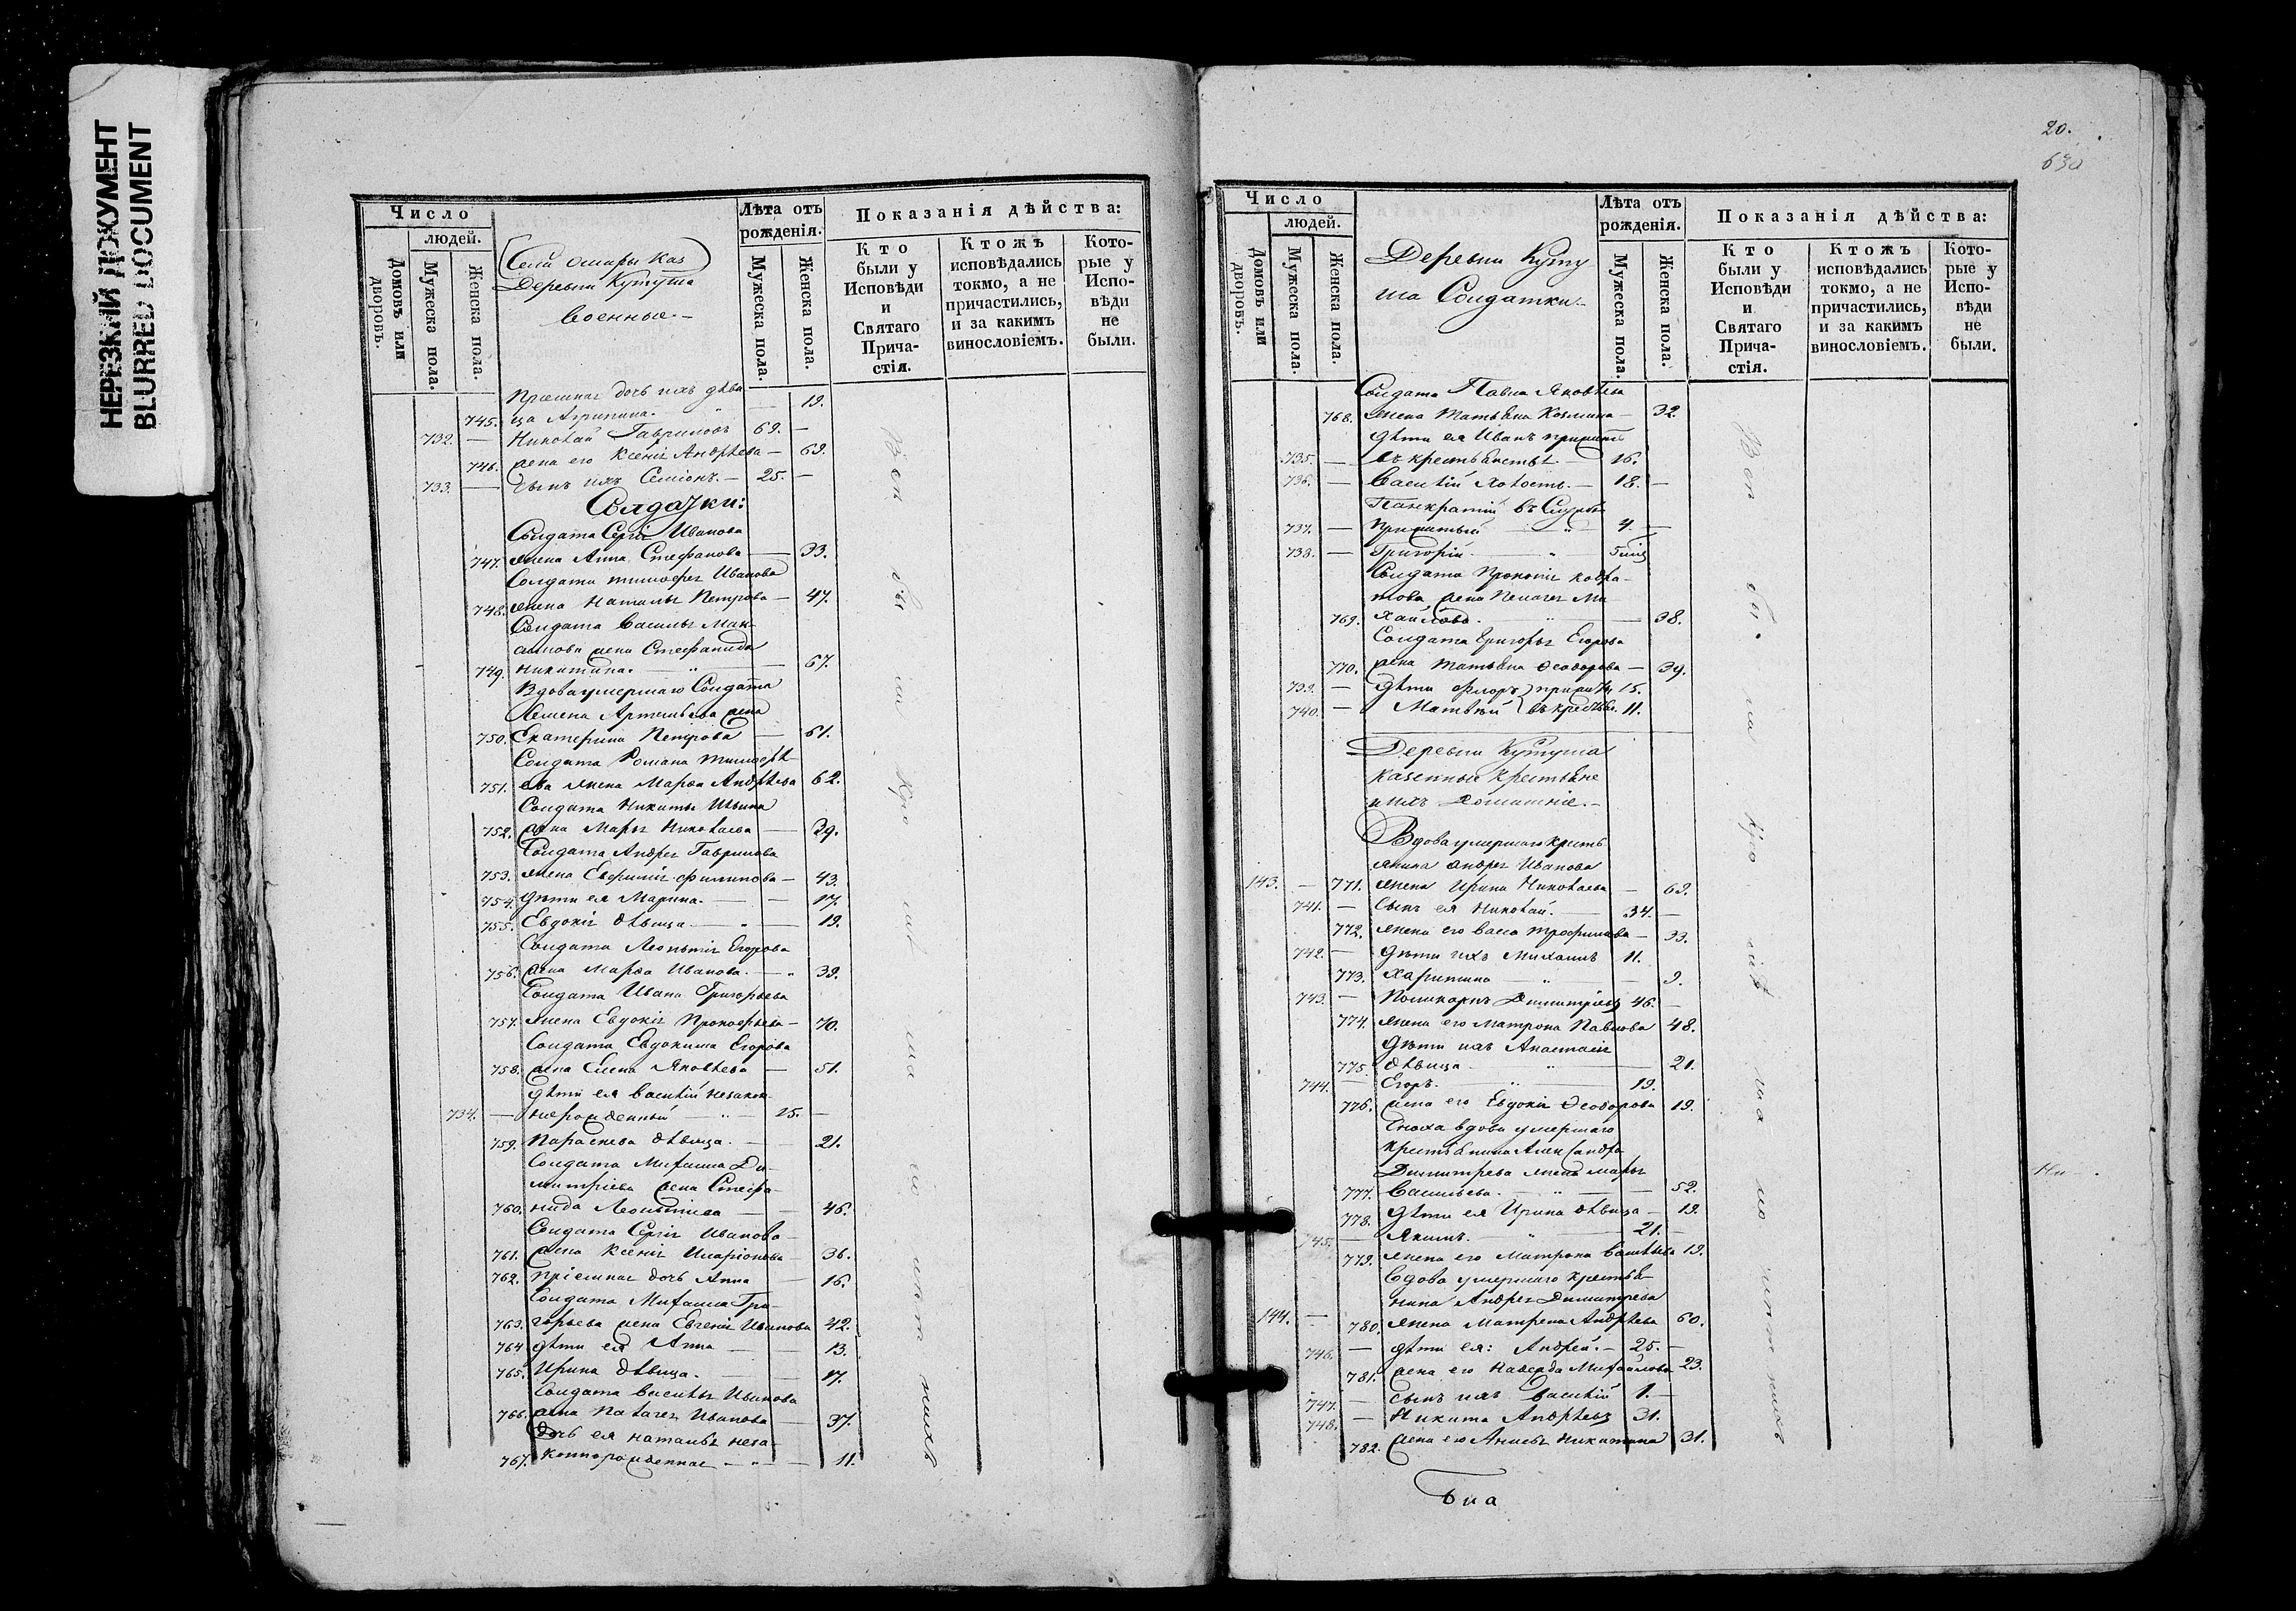 НЕРЕЗКИЙ ДОКУМЕНТ
BLURRED DOCUMENT
Число
людей.
Домовъ или дворовъ.
Мужеска пола.
Женска пола.
Деревни Кутуша
Военные.
Лѣта отъ рожденія.
Мужеска пола.
Женска пола.
Показанія дѣйства:
Кто были у Исповѣди и Святаго Прича-стія.
Ктожъ исповѣдались токмо, а не причастились, и за какимъ винословіемъ.
Кото-рые у Испо-вѣди не были.
дочь ихъ дѣви
745. ца Агрипина. 19.
732. — Николай Гавриловъ 69. —
746. жена его Ксенія Андрѣева — 69.
733. — сынъ ихъ Семіонъ. — 25. —
Солдатки:
Солдата Сергія Иванова
747. жена Анна Стефанова — 33.
Солдата Тимофея Иванова
748. жена Наталья Петрова — 47.
Солдата Василья Мак-
симова жена Стефанида
749. Никитина. — 67.
Вдова умершаго Солдата
Семена Артемьева жена
750. Екатерина Петрова — 61.
Солдата Романа Тимофѣ-
751. ева жена Марѳа Андрѣева 62.
Солдата Никиты Ильина
752. жена Марья Николаева — 39.
Солдата Андрея Гаврилова
753. жена Евфимія Филипова — 43.
754. дѣти ея Марина. — 17.
755. Евдокія дѣвица — 19.
Солдата Леонтія Егорова
756. жена Марѳа Иванова. — 39.
Солдата Ивана Григорьева
757. жена Евдокія Прокофьева — 70.
Солдата Евдокима Егорова
758. жена Елена Яковлева — 51.
дѣти ея Василій незакон-
734. — норожденный — 25. —
759. Параскева дѣвица. — 21.
Солдата Михаила Ди-
митріева жена Стефа-
760. нида Леонтіева — 46.
Солдата Сергія Иванова
761. жена Ксенія Иларіонова — 36.
762. пріемная дочь Анна — 16.
Солдата Михаила Гри-
763. горьева жена Евгенія Иванова 42.
764 дѣти ея Анна — 13.
765. Ирина дѣвица. — 17.
Солдата Василья Иванова
766. жена Пелагея Иванова — 37.
дочь ея Наталья неза-
767. коннорожденная — 11.
20.
Число
людей.
Домовъ или дворовъ.
Мужеска пола.
Женска пола.
Деревни Куту
ша Солдатки.
Лѣта отъ рожденія.
Мужеска пола.
Женска пола.
Показанія дѣйства:
Кто были у Исповѣди и Святаго Прича-стія.
Ктожъ исповѣдались токмо, а не причастились, и за какимъ винословіемъ.
Кото-рые у Испо-вѣди не были.
Солдата Павла Яковлева
768. жена Татьяна Козмина — 32.
дѣти ея Иванъ
735. — 16.
736. — Василій холостъ. — 18. —
Панкратій въ
737. — 4. —
738. — Григорій.
Солдата Прокопія
жена Пелагея Ми
769. хайлова. — 38.
Солдата Григорья Егорова
770. жена Татьяна Ѳеодорова — 39.
739. — дѣти Флоръ 15.
740. — Матвѣй 11.
Деревни Кутуша
казенные крестьяне
и ихъ домашніе.
Вдова умершаго кресть
янина Андрея Иванова
143. — 771. жена Ирина Николаева — 69.
741. — Сынъ ея Николай. — 34. —
772. жена его Васса Трофимова — 33.
742. — дѣти ихъ Михаилъ 11.
773. Харитина — 9.
743. — Поликарпъ Димитріевъ 46. —
774. жена его Матрона Павлова 48.
дѣти ихъ Анастасія
775. дѣвица — 21.
744. — Егоръ. 19.
776. жена его Евдокія Ѳеодорова 19.
Сноха вдова умершаго
крестьянина Александра
Димитрева жена Марья
777. Васильева. — 52.
778. дѣти ея Ирина дѣвица — 19.
745. — Якимъ. 21. —
779. жена его Матрона 19.
Вдова умершаго крестья-
нина Андрея Димитрева
144. — 780. жена Матрена Андрѣева 60.
746. — дѣти ея: Андрей. — 25. —
781. жена его Надежда Михайлова 23.
747. — сынъ ихъ Василій 1. —
748. — Никита Андрѣевъ 31.
782. жена его Анисья Никитина 31.